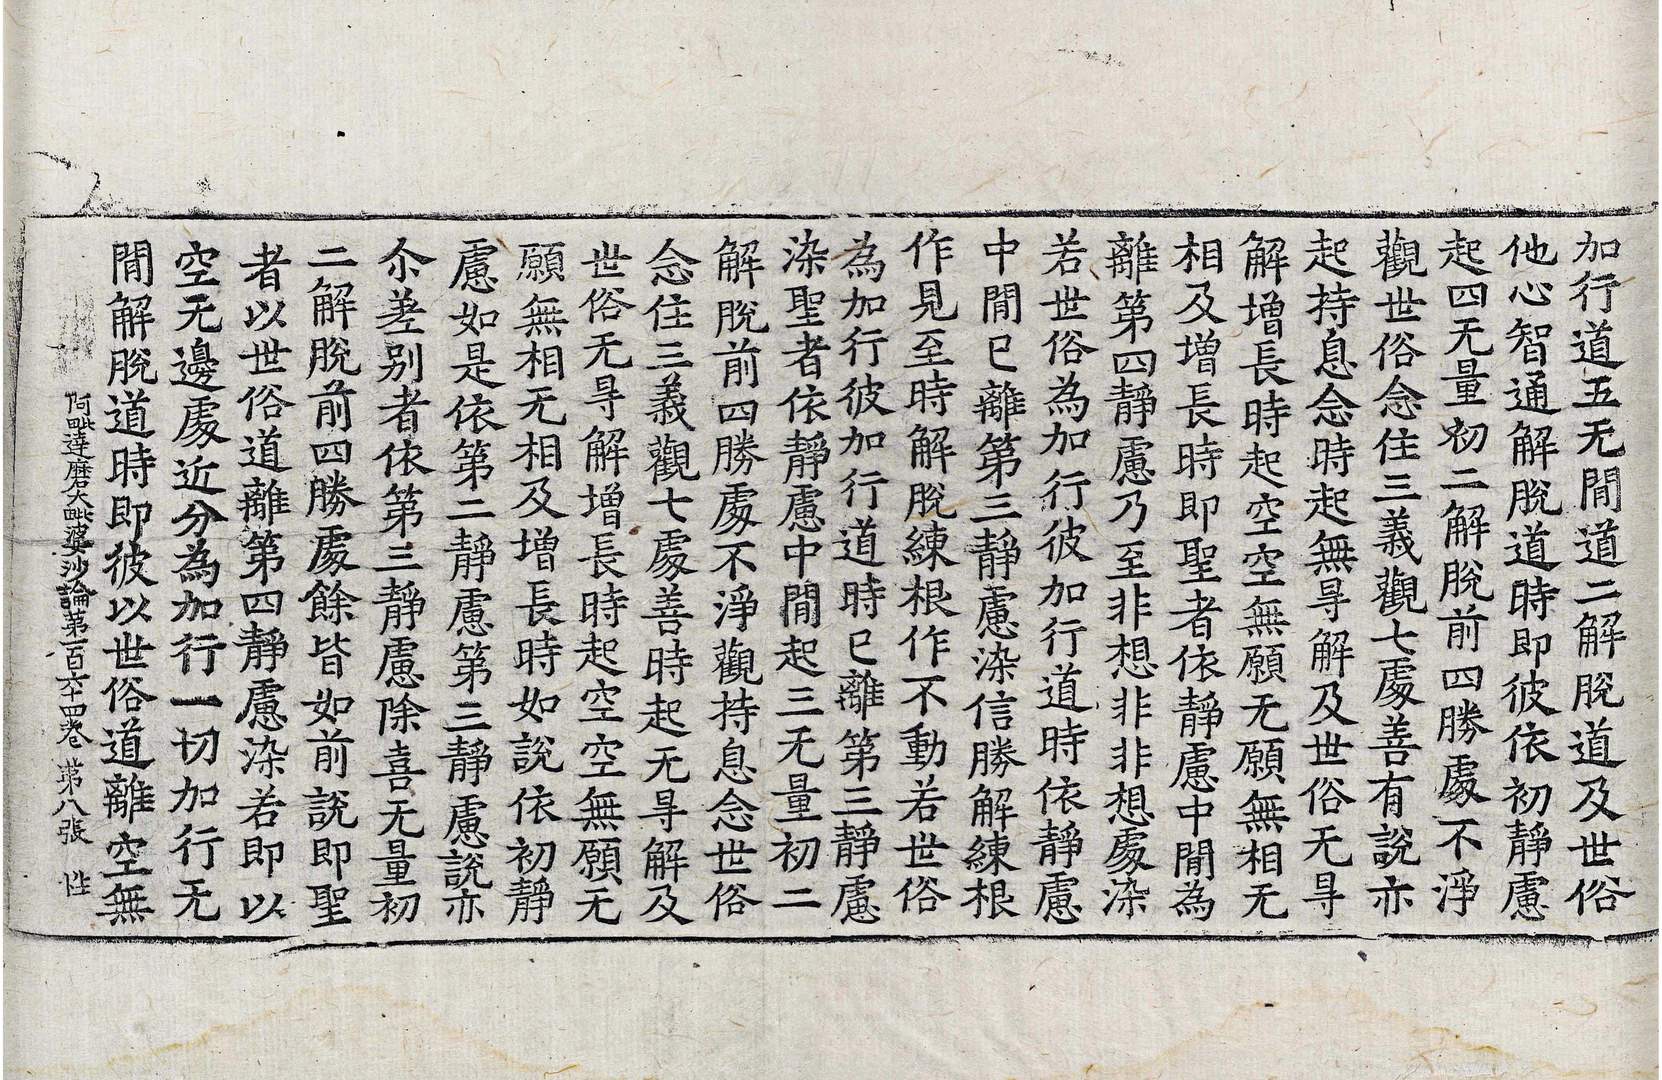 加行道五无閒道二解脫道及世俗
他心智通解脫道時即彼依初靜慮
起四无量初二解脫前四勝處不淨
觀世俗念住三義觀七處善有說亦
起持息念時起無㝵解及世俗无㝵
解增長時起空空無願无願無相无
相及增長時即聖者依靜慮中閒為
離第四靜慮乃至非想非非想處染
若世俗為加行彼加行道時依靜慮
中閒已離第三靜慮染信勝解練根
作見至時解脫練根作不動若世俗
為加行彼加行道時已離第三靜慮
染聖者依靜慮中閒起三无量初二
解脫前四勝處不淨觀持息念世俗
念住三義觀七處善時起无㝵解及
世俗无㝵解增長時起空空無願无
願無相无相及增長時如說依初靜
慮如是依第二靜慮第三靜慮說亦
尒差別者依第三靜慮除喜无量初
二解脫前四勝處餘皆如前說即聖
者以世俗道離第四靜慮染若即以
空无邊處近分為加行一切加行无
閒解脫道時即彼以世俗道離空無
阿毗達磨大毗婆沙論第一百六十四卷 第八張 性